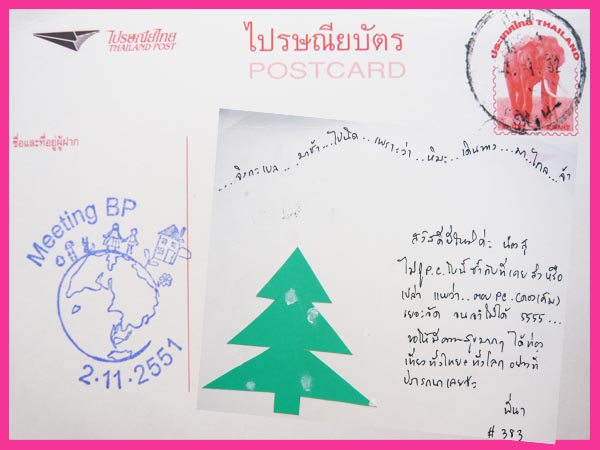 ไปรษณีย์ไทย
THAILAND POST
ไปรษณียบัตร
POSTCARD
ประเทศไทย THAILAND
ชื่อและที่อยู่ผู้ฝาก
มาช้า...ไปนิด...เพราะว่า...หิมะ...เดินทาง...มา...ไกล...จ้า
Meeting BP
2.11.2551
สวัสดีปีใหม่ค่ะ
ไม่รู้ P.C. ใบนี้ ซ้ำกับที่เคยส่งหรือ
เปล่า แหะๆ.. ตอบ PC.
เยอะจัด จนจำไม่ได้ 5555...
ขอให้มีความสุขมากๆ ได้ท่อง
เที่ยวทั่วไทย + ทั่วโลก อย่างที่
ปรารถนาเลยจ้ะ
พี่นา
# 383